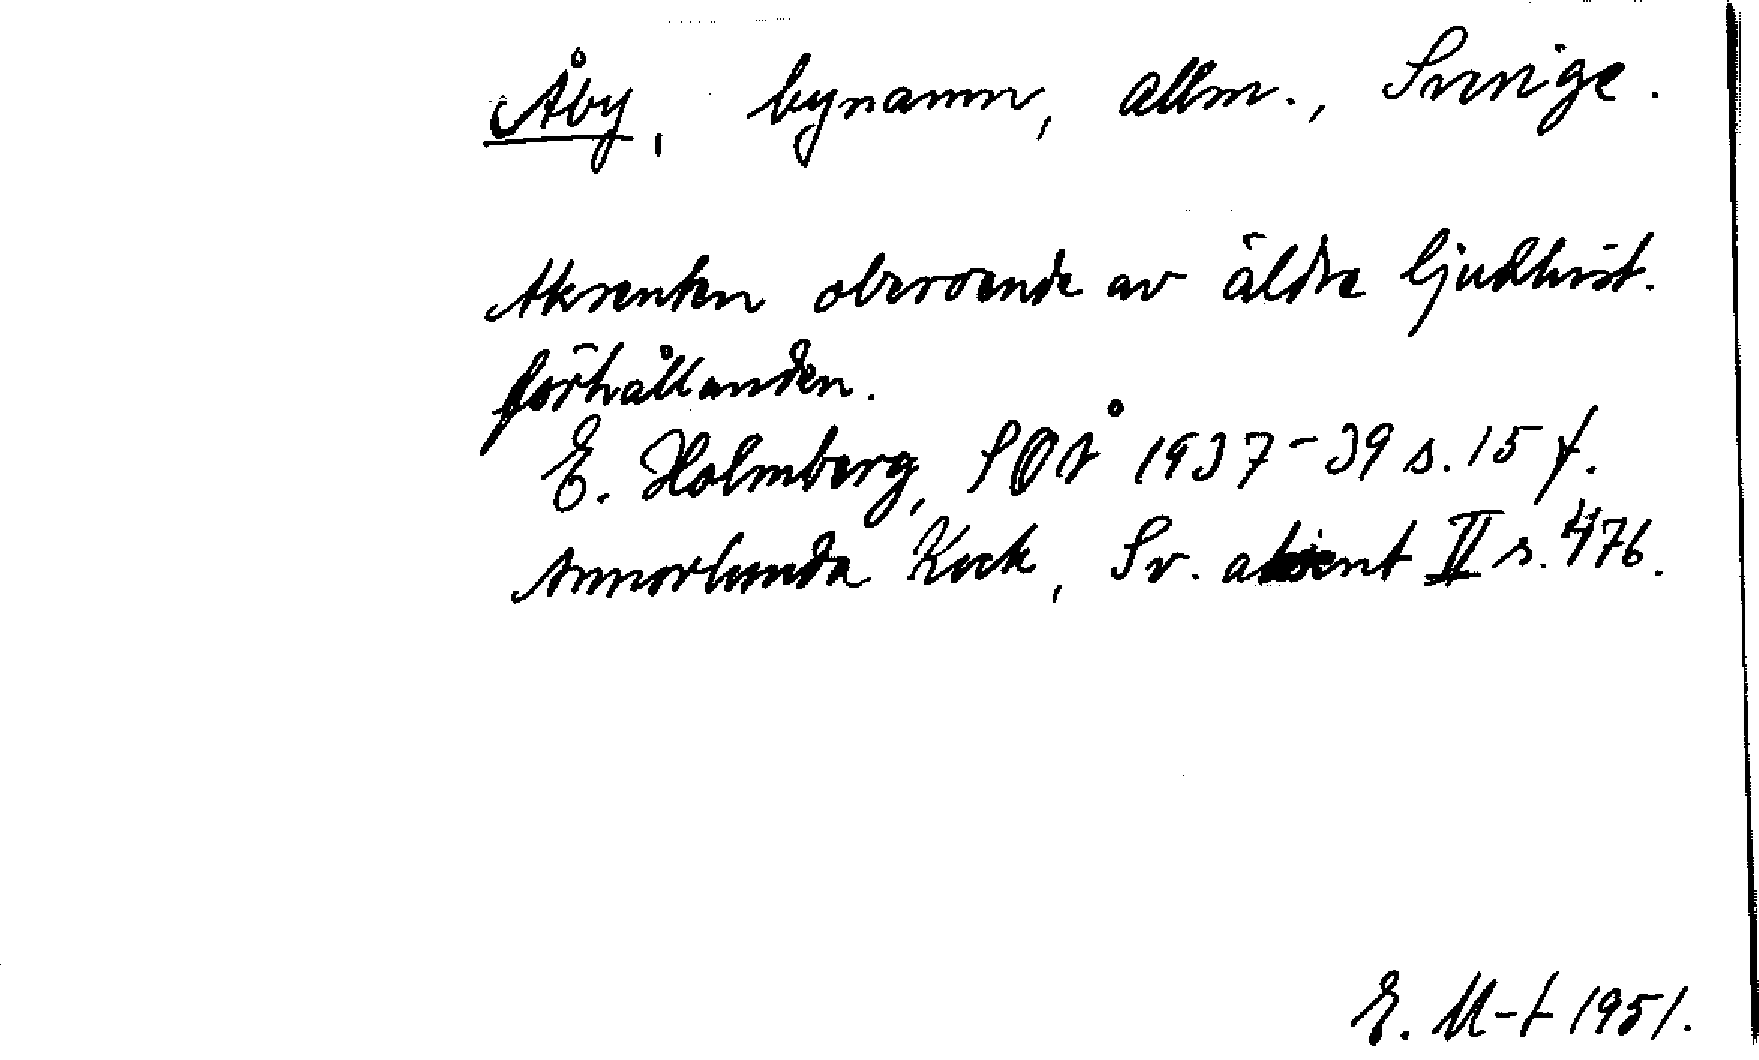 Åby, bynamn, allm., Sverige.
Aksenten oberoende av äldre ljudhist.
förhållanden.
E. Holmberg, SOÅ 1937-39 s. 15 f.
Annorlunda Kock, Sv. aksent II s. 476.
E. M-t 1951.